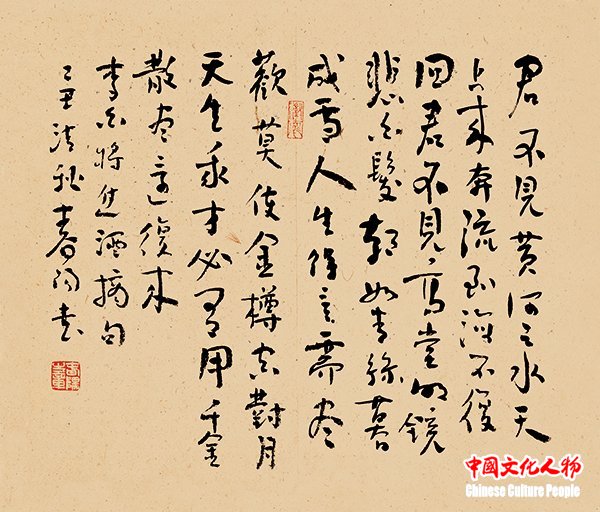 君不見黄河之水天
上来奔流到海不復
回君不見高堂明鏡
悲白髮朝如青絲暮
成雪人生得意需尽
歡莫使金樽空對月
天生我才必有用千金
散尽還復来
李白將進酒摘句
丑清秋春阳书
中國文化人物
Chinese Culture People